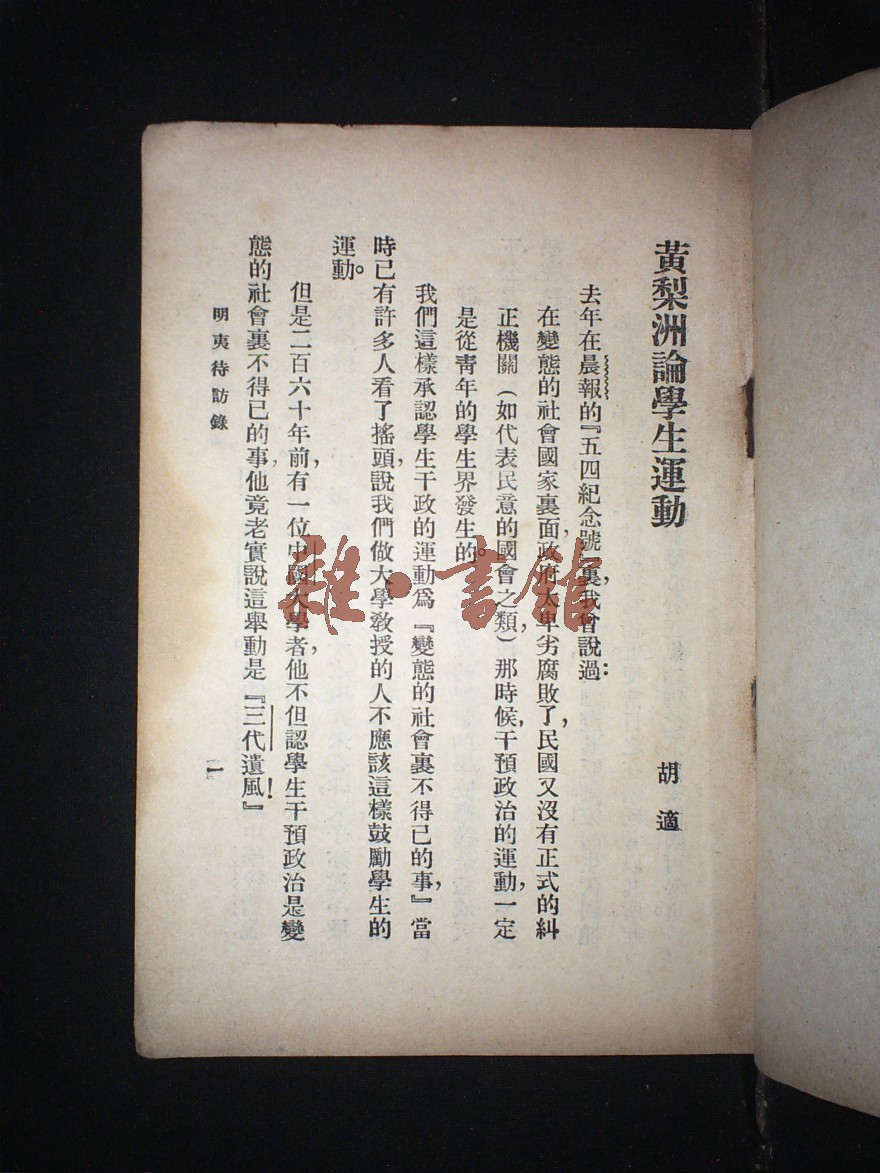 黃梨洲論學生運動
胡適
去年在晨報的『五四紀念號』裏，我曾說過：
在變態的社會國家裏面，政府太卑劣腐敗了，民國又沒有正式的糾
正機關（如代表民意的國會之類，）那時候，干預政治的運動，一定
是從靑年的學生界發生的。
我們這樣承認學生干政的運動爲『變態的社會裏不得已的事，』當
時已有許多人看了搖頭，說我們做大學敎授的人不應該這樣鼓勵學生的
運動。
但是二百六十年前，有一位中國大學者，他不但認學生干預政治是變
態的社會裏不得已的事，他竟老實說這舉動是『三代遺風』！
明夷待訪錄
一
雜·書館